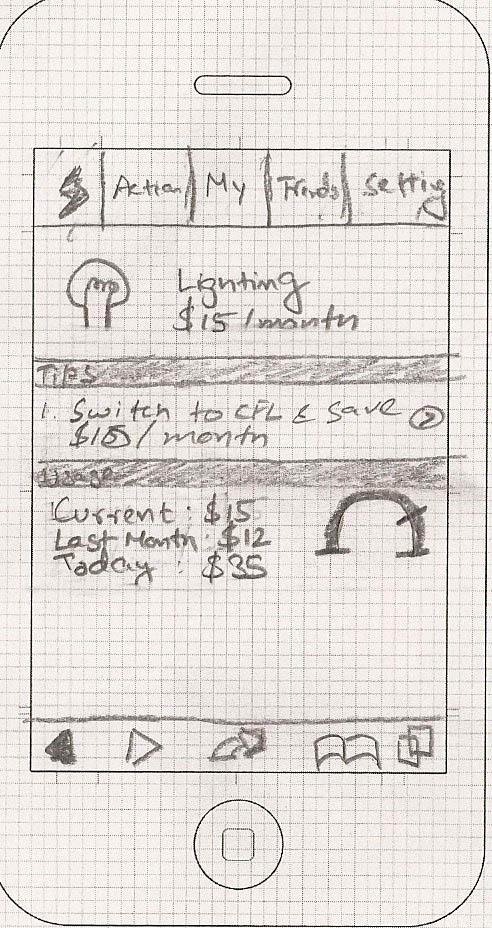 Action My Trends Setting
Lighting
$15/month
TIPS
1. Switch to CFL & Save
$10/month
Usage
Current: $15
Last Month: $12
Today : $35